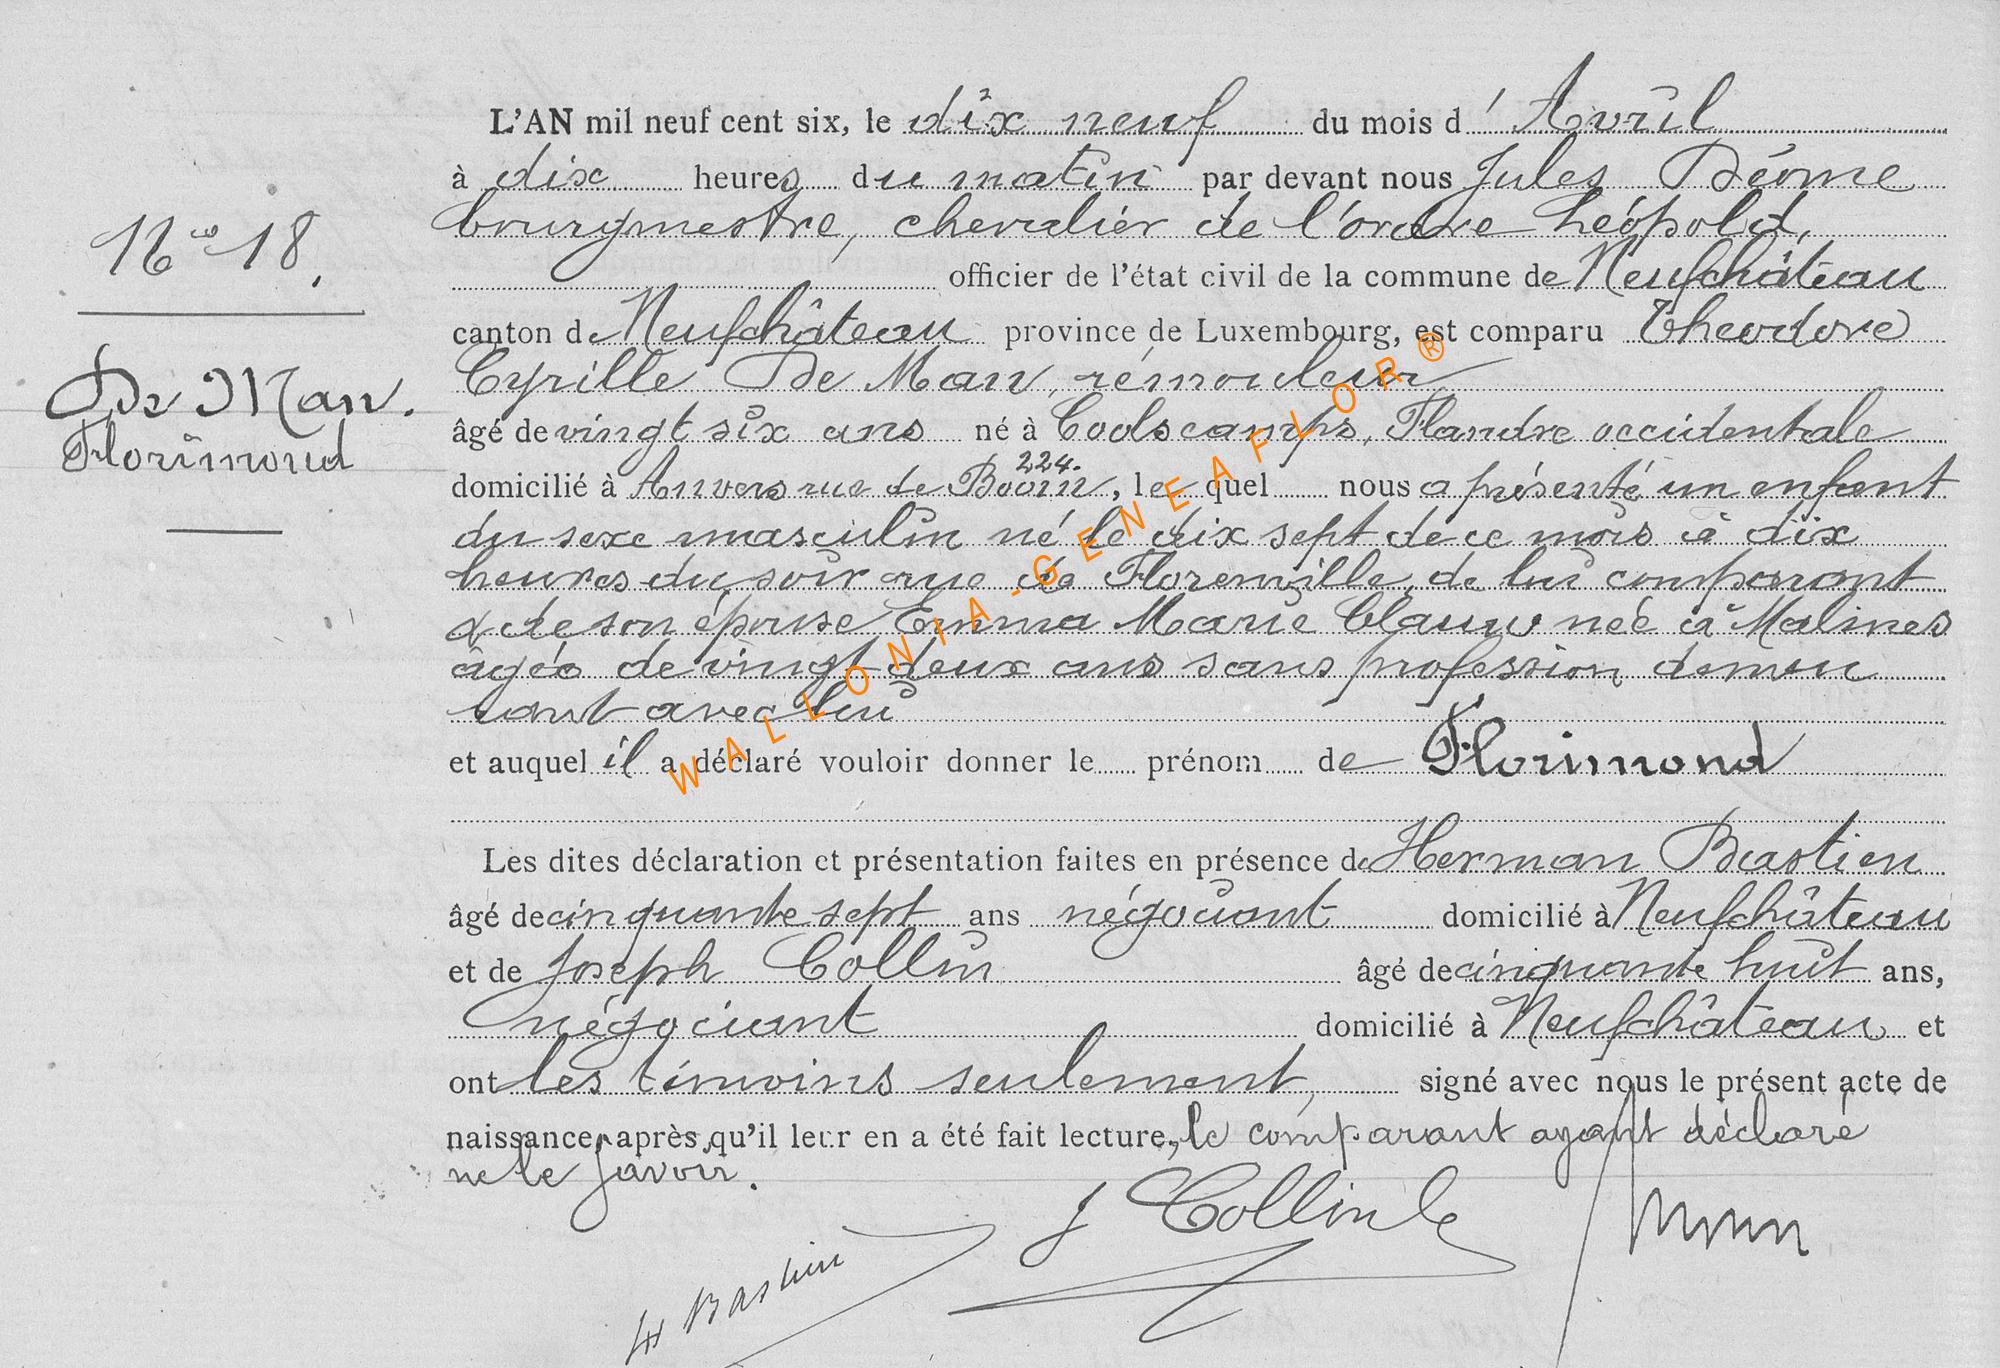 L'AN mil neuf cent six, le dix neuf du mois d'Avril
à dix heures du matin par devant nous Jules
bourgmestre, chevalier de l'ordre Léopold,
officier de l'état civil de la commune de Neufchâteau
N° 18.
canton de Neufchâteau province de Luxembourg, est comparu Theodore
Cyrille De Man, rémouleur
De Man.
Florimond
âgé de vingt six ans né à Coolscamps, Flandre occidentale
domicilié à Anvers rue de 224., lequel nous a présenté un enfant
du sexe masculin né le dix sept de ce mois à dix
heures du soir rue de Florenville, de lui comparant
& de son épouse Emma Marie Clauw née à Malines
âgée de vingt deux ans sans profession demeu
rant avec lui
et auquel il a déclaré vouloir donner le prénom de Florimond
Les dites déclaration et présentation faites en présence de Herman Bastien
âgé de cinquante sept ans négociant domicilié à Neufchâteau
et de Joseph Collin âgé de cinquante huit ans,
négociant domicilié à Neufchâteau et
ont les témoins seulement, signé avec nous le présent acte de
naissance, après qu'il leur en a été fait lecture, le comparant ayant déclaré
ne le savoir.
J Collin
H Bastien
WALLONIA-GENEAFLOR®